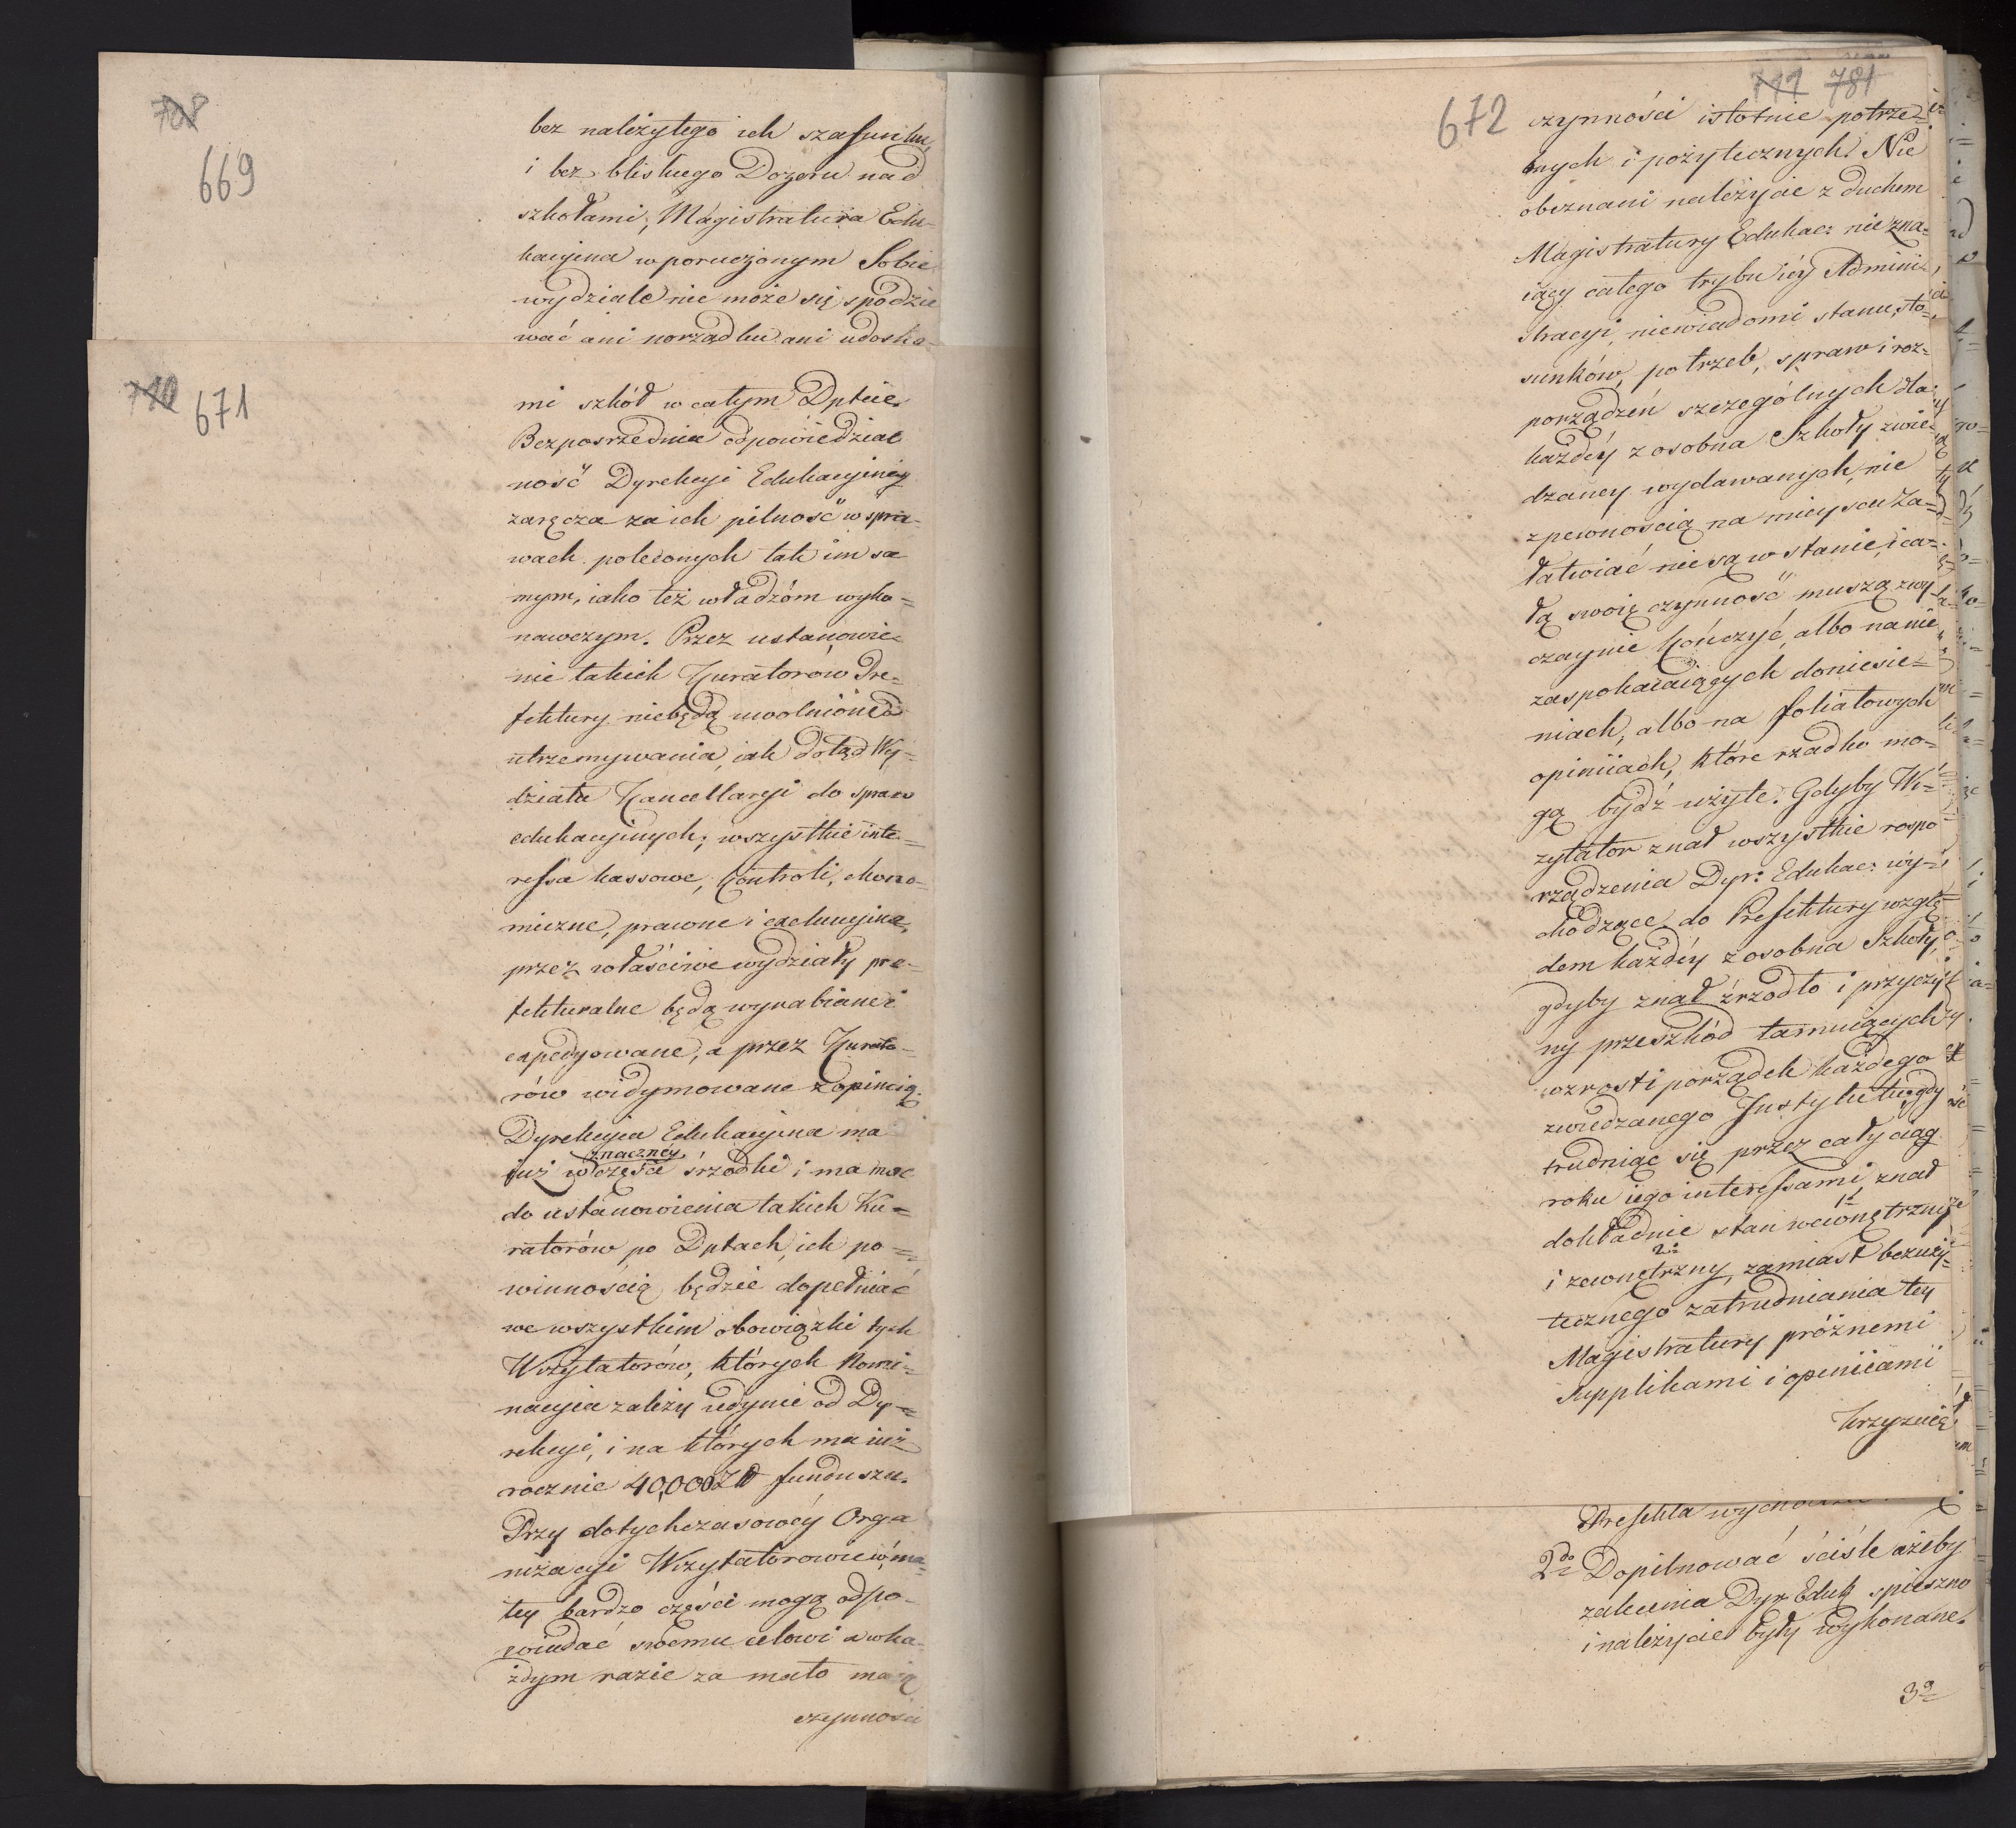 708
669
bez należytego ich szafunku,
i bez bliskiego Dozoru nad
szkołami, Magistratura Edu-
kacyina w poruczonym Sobie
wydziale nie może się spodzie
wać ani porządku ani udosko-
710 671
mi szkół w całym Dptcie.
Bezpośrzednia odpowiedzial
ność Dyrekcyi Edukacyiney
zaręcza za ich pilność w spra-
wach poleconych tak im sa
mym, iako też władzóm wyko=
nawczym. Przez ustanowie-
nie takich Kuratorow Pre=
fektury niebędą uwolnione od
utrzemywania, iak dotąd Wy=
działu Kancellaryi do spraw
edukacyinych; wszystkie inte=
ressa kassowe, kontroli, ekono-
miczne, prawne i exekucyine,
przez właściwe wydziały pre-
fekturalne będą wyrabiane i
expedyowane, a przez Kurato-
rów widymowane z opiniią.
Dyrekcyia Edukacyina ma
znacznéy
iuż w części śrzodki i ma moc
do ustanowienia takich Ku=
ratorów po Dptach, ich po=
winnością będzie dopełniać
we wszystkim obowiązki tych
Wizytatorów, których Nomi=
nacyia zależy iedynie od Dy=
rekcyi, i na których ma iuż
rocznie 40,000 Zł funduszu.
Przy dotychczasowéy Orga
nizacyi Wizytatorowie w ma-
łey bardzo części mogą odpo-
wiadać swemu celowi a w ka-
żdym razie za mało maią
czynności
672 711 781
czynności istotnie potrze=
bnych i pożytecznych. Nie
obeznani należycie z duchem
Magistratury Edukac: nie zna=
iący całego trybu iéy Admini-
stracyi, niewiadomi stanu, sto=
sunków, potrzeb, spraw i roz=
porządzeń szczególnych dla
każdéy z osobna Szkoły zwie-
dzaney wydawanych, nic
z pewnością na mieyscu za=
łatwiać nie są w stanie, i ca=
łą swoię czynność muszą zwy
czaynie kończyć, albo na nie
zaspokaiaiących doniesie=
niach, albo na foliałowych
opiniiach, które rzadko mo=
gą bydź użyte. Gdyby Wi=
zytator znał wszystkie rospo
rządzenia Dyr: Edukac: wy=
chodzące do Prefektury wzglę
dem każdéy z osobna Szkoły,
gdyby znał źrzodło i przyczy
ny przeszkód tamuiących
wzrost i porządek każdego
zwiedzanego Instytutu; gdy
trudniąc się przez cały ciąg
roku iego interessami, znał
1.
dokładnie stan wewnętrzny
2.
i zewnętrzny, zamiast bezuży=
tecznego zatrudniania tey
Magistratury próżnemi
supplikami i opiniiami
Krzyżuią
Prefekta
2do Dopilnować ściśle ażeby
zalecenia Dyr. Eduk spieszno
i należycie były wykonane.
3o